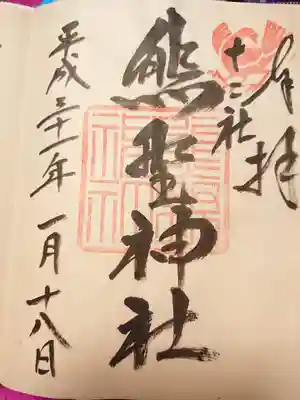 奉拝
十二社
熊野神社
平成三十一年一月十八日